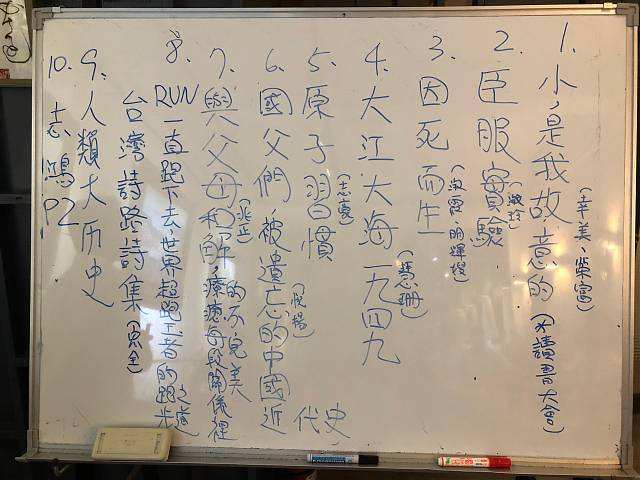 1. 小,是我故意的(不讀書大會)
(幸美、榮富)
2. 臣服實驗
(淑玲)
3. 因死而生
(淑霞、明輝嫂)
4. 大江大海一九四九
(慧珊)
5. 原子習慣
(志豪)
6. 國父們,被遺忘的中國近
代史
7. 與父母和解,療癒每段關係裡
的不完美
8. RUN一直跑下去,世界超跑王者的跑步
之道
台灣詩路詩集
9. 人類大历史
10. 志鴻 P2